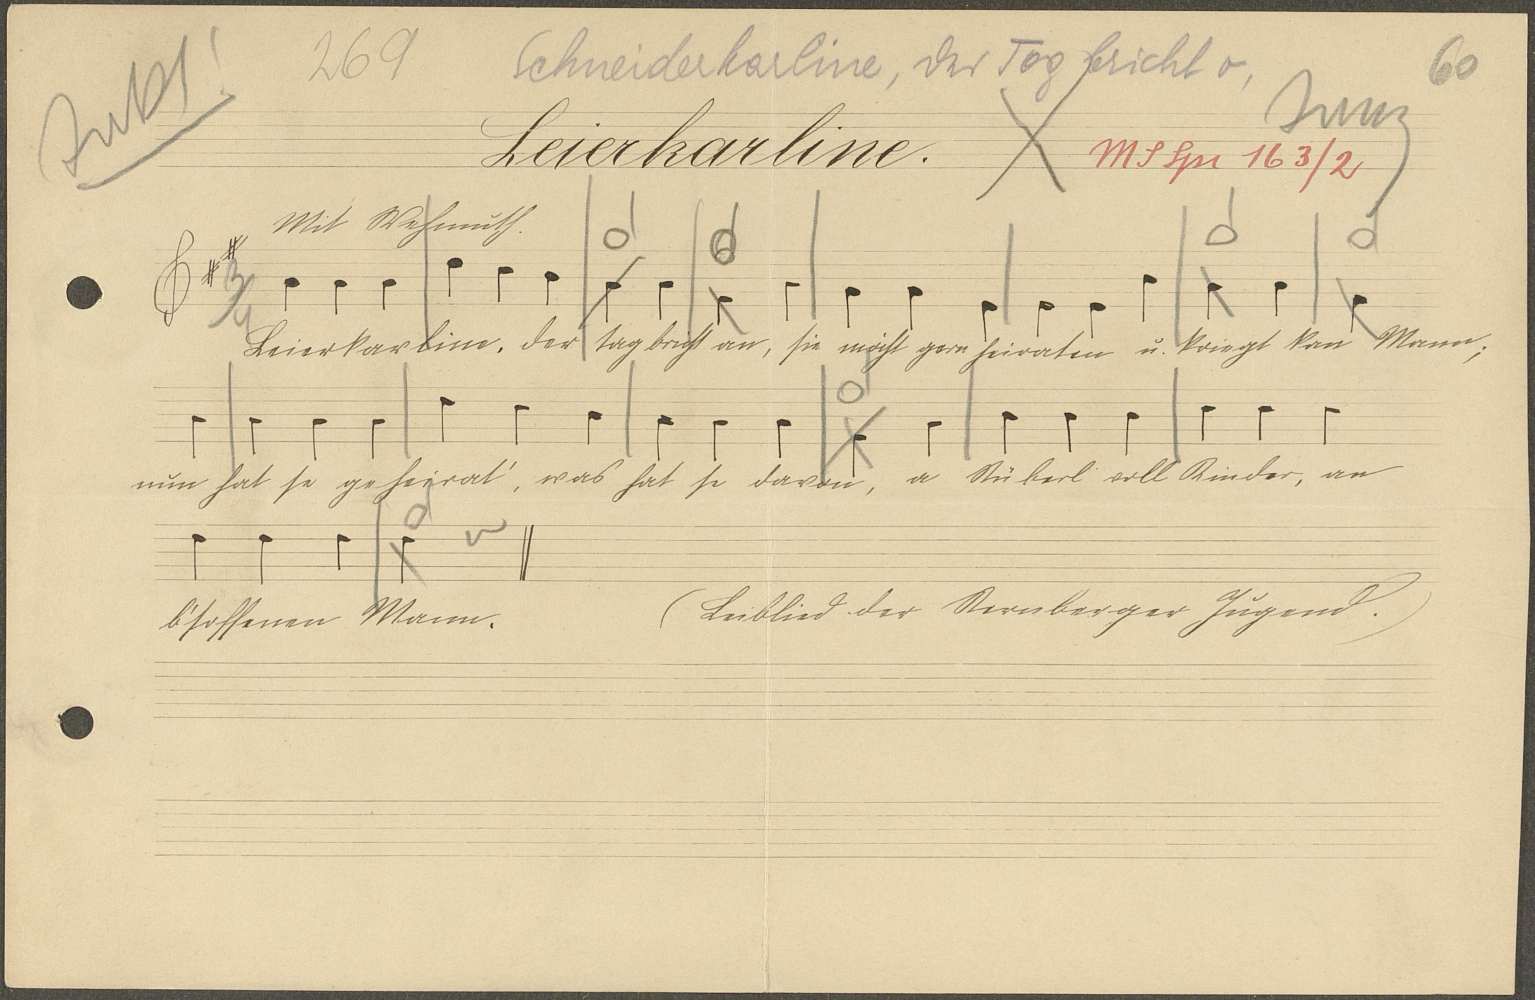 269 Schneiderkarline, der Tog bricht o, 60
Leierkarline.
163/2
Mit Wehmuth.
3/4
Leierkarline, der tag bricht an, sie möcht gern heiraten u. kriegt kan Mann;
nun hat se geheirat', was hat se davon, a Stüberl voll Kinder, an
b'soffenen Mann. (Leiblied der Sternberger Jugend.)